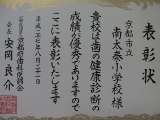 表彰状
京都市立
南太秦小学校様
貴校は歯の健康診断の
成績が優秀でありますので
ここに表彰いたします
平成二十七年八月二十二日
会長 安岡良介